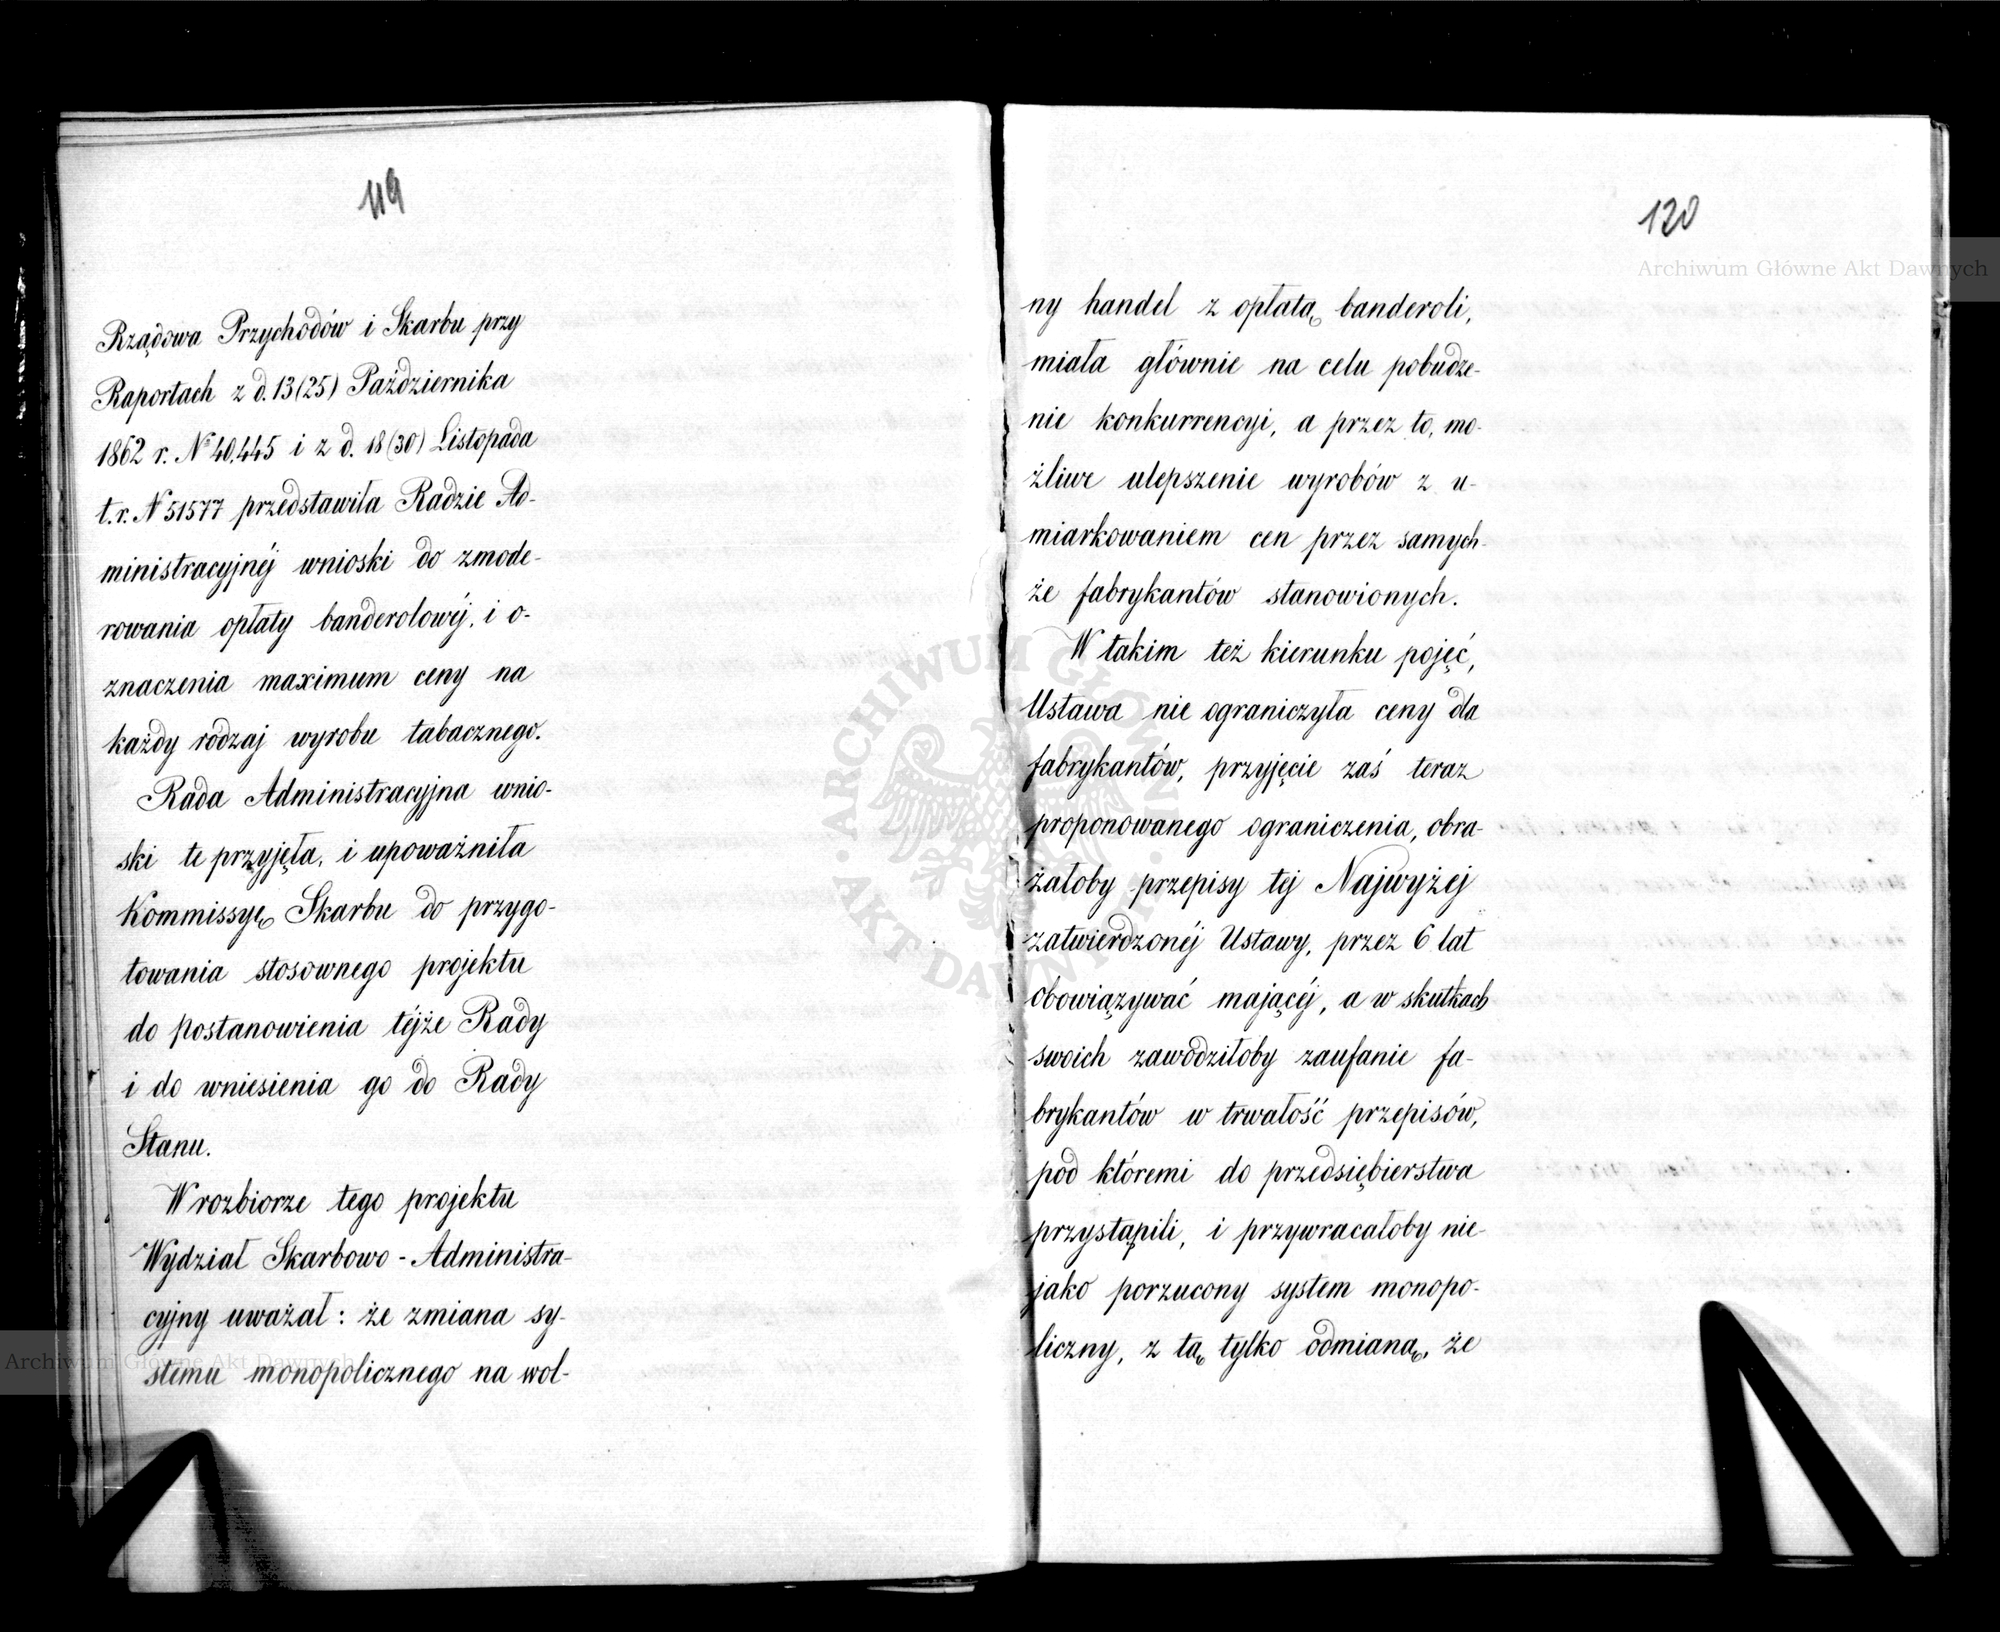 119
Rządowa Przychodów i Skarbu przy
Raportach z d. 13 (25) Października
1862 r. № 40,445 i z d. 18 (30) Listopada
t.r. N 51577 przedstawiła Radzie Ad-
ministracyjnéj wnioski do zmode-
rowania opłaty banderolowéj, i o-
znaczenia maximum ceny na
każdy rodzaj wyrobu tabacznego.
Rada Administracyjna wnio-
ski te przyjęła, i upoważniła
Kommissyę Skarbu do przygo-
towania stosownego projektu
do postanowienia téjże Rady
i do wniesienia go do Rady
Stanu.
W rozbiorze tego projektu
Wydział Skarbowo - Administra-
cyjny uważał : że zmiana sy-
stemu monopolicznego na wol-
120
ny handel z opłatą banderoli,
miała głównie na celu pobudze-
nie konkurrencyi, a przez to, mo-
żliwe ulepszenie wyrobów z u-
miarkowaniem cen przez samych-
że fabrykantów stanowionych.
W takim też kierunku pojęć,
Ustawa nie ograniczyła ceny dla
fabrykantów, przyjęcie zaś teraz
proponowanego ograniczenia, obra-
żałoby przepisy tej Najwyżej
zatwierdzonéj Ustawy, przez 6 lat
obowiązywać mającéj, a w skutkach
swoich zawodziłoby zaufanie fa-
brykantów w trwałość przepisów,
pod któremi do przedsiębierstwa
przystąpili, i przywracałoby nie-
jako porzucony system monopo-
liczny, z tą tylko odmianą, że
Archiwum Główne Akt Dawnych
Archiwum Główne Akt Dawnych
ARCHIWUM GŁÓWNE AKT DAWNYCH